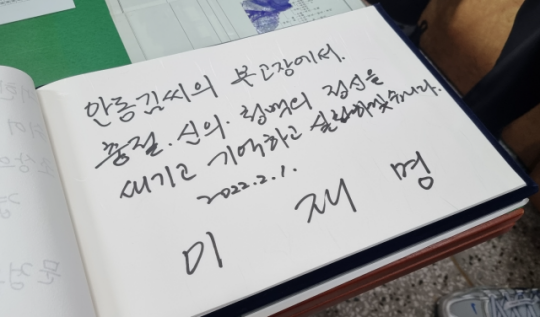 안동김씨의 본고장에서.
충절. 신의. 청백의 정신을
새기고 기억하고 실천하겠습니다.
2022.2.1.
이 재 명